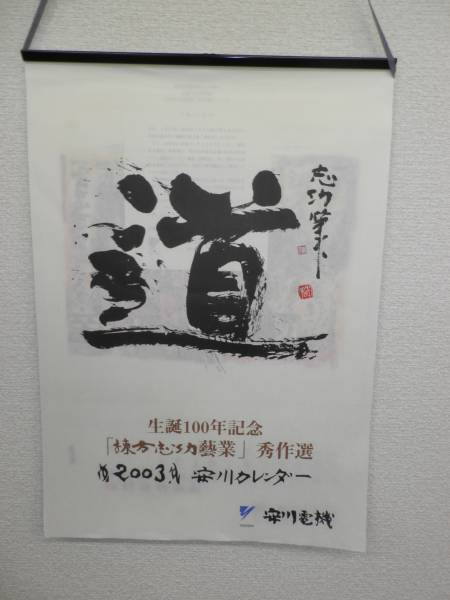 道
志功筆
生誕100年記念
「棟方志功藝業」秀作選
2003 安川カレンダー
安川電機